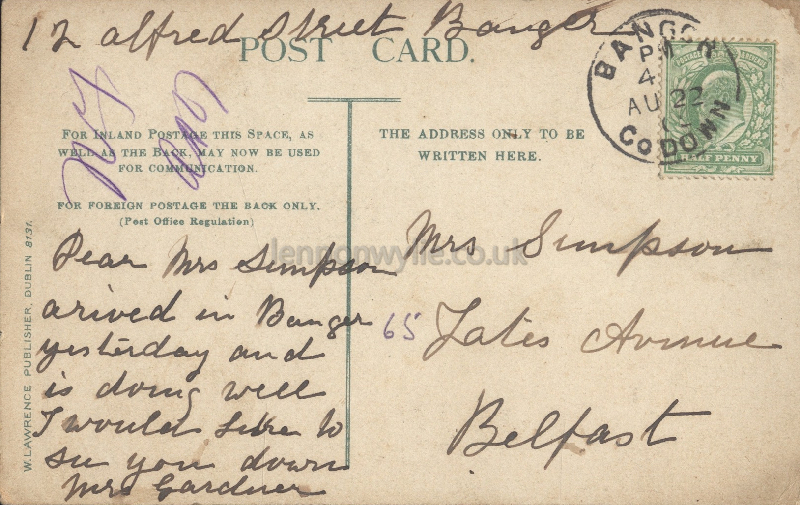 12 alfred Street Banger
POST CARD.
BANGOR
PM
4
AU 22
CO DOWN
POSTAGE & REVENUE
HALF PENNY
FOR INLAND POSTAGE THIS SPACE, AS
WELL AS THE BACK, MAY NOW BE USED
FOR COMMUNICATION.
FOR FOREIGN POSTAGE THE BACK ONLY.
(Post Office Regulation)
THE ADDRESS ONLY TO BE
WRITTEN HERE.
W. LAWRENCE PUBLISHER, DUBLIN 8131.
lennonwylie.co.uk
Dear Mrs Simpson
arived in Banger
yesterday and
is doing well
I would like to
see you down
Mrs Gardner
Mrs Simpson
65 Yates Avenue
Belfast